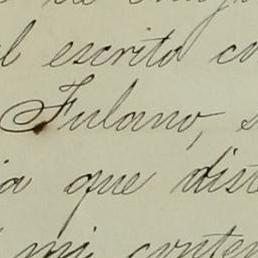 el escrito co
Fulano, s
ia que dist
mi conten